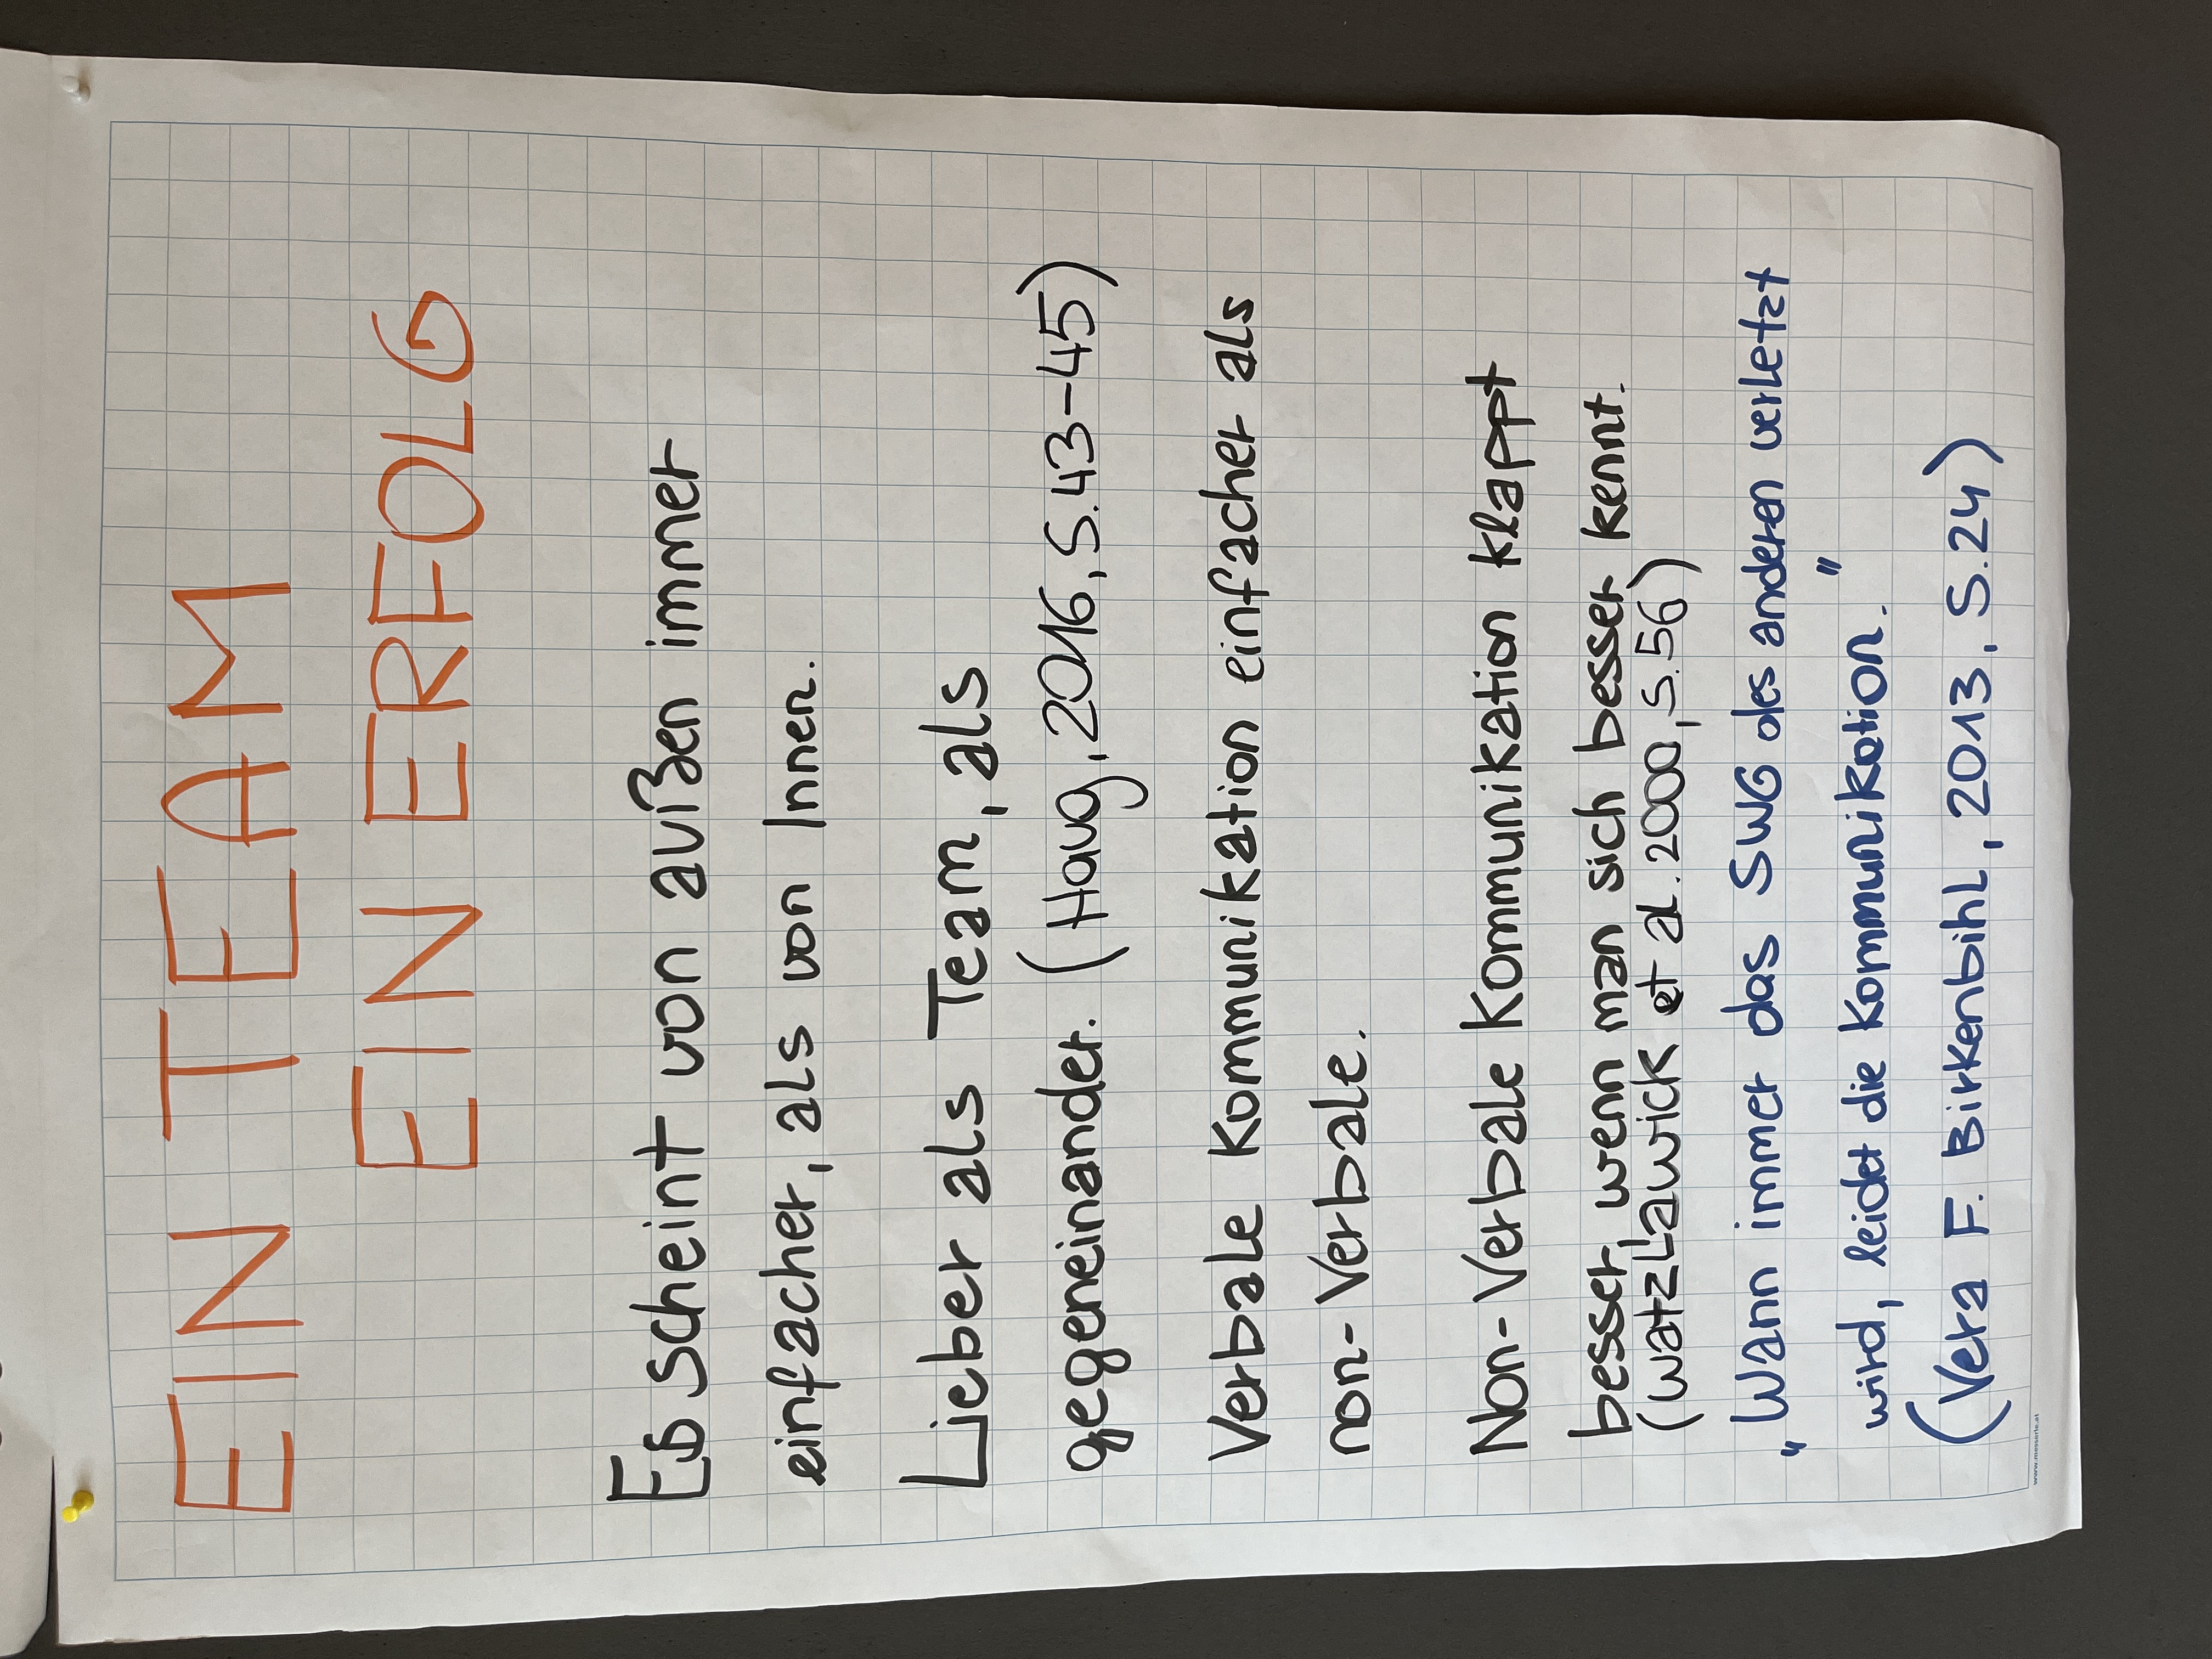 EIN TEAM
EIN ERFOLG
Es scheint von außen immer
einfacher, als von Innen.
Lieber als Team, als
gegeneinander. (Haug, 2016, S. 43-45)
Verbale Kommunikation einfacher als
non-Verbale.
Non-Verbale Kommunikation klappt
besser, wenn man sich besser kennt.
(Watzlawick et al. 2000, S. 56)
„Wann immer das SWG des anderen verletzt
wird, leidet die Kommunikation."
(Vera F. Birkenbihl, 2013, S. 24)
www.messerle.at